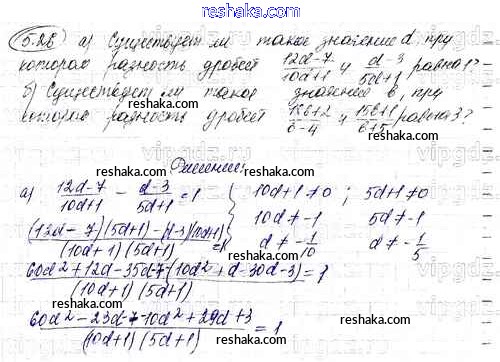 reshaka.ru
5.26 а) Существует ли такое значение d, при
котором разность дробей 12d-7/10d+1 и d-3/5d+1 равна 1?
б) Существует ли такое значение b, при
котором разность дробей и 15b+1/b+5 равна 3?
reshaka.ru
Решение:
reshaka.ru
а) 12d-7/10d+1 - d-3/5d+1 = 1 { 10d+1≠0 ; 5d+1≠0
(12d-7)(5d+1)-(d-3)(10d+1)/(10d+1)(5d+1) = 1 10d≠-1 5d≠-1
d≠-1/10 d≠-1/5
60d²+12d-35d-7-(10d²+d-30d-3)/(10d+1)(5d+1) = 1
60d²-23d-7-10d²+29d+3/(10d+1)(5d+1) = 1
reshaka.ru